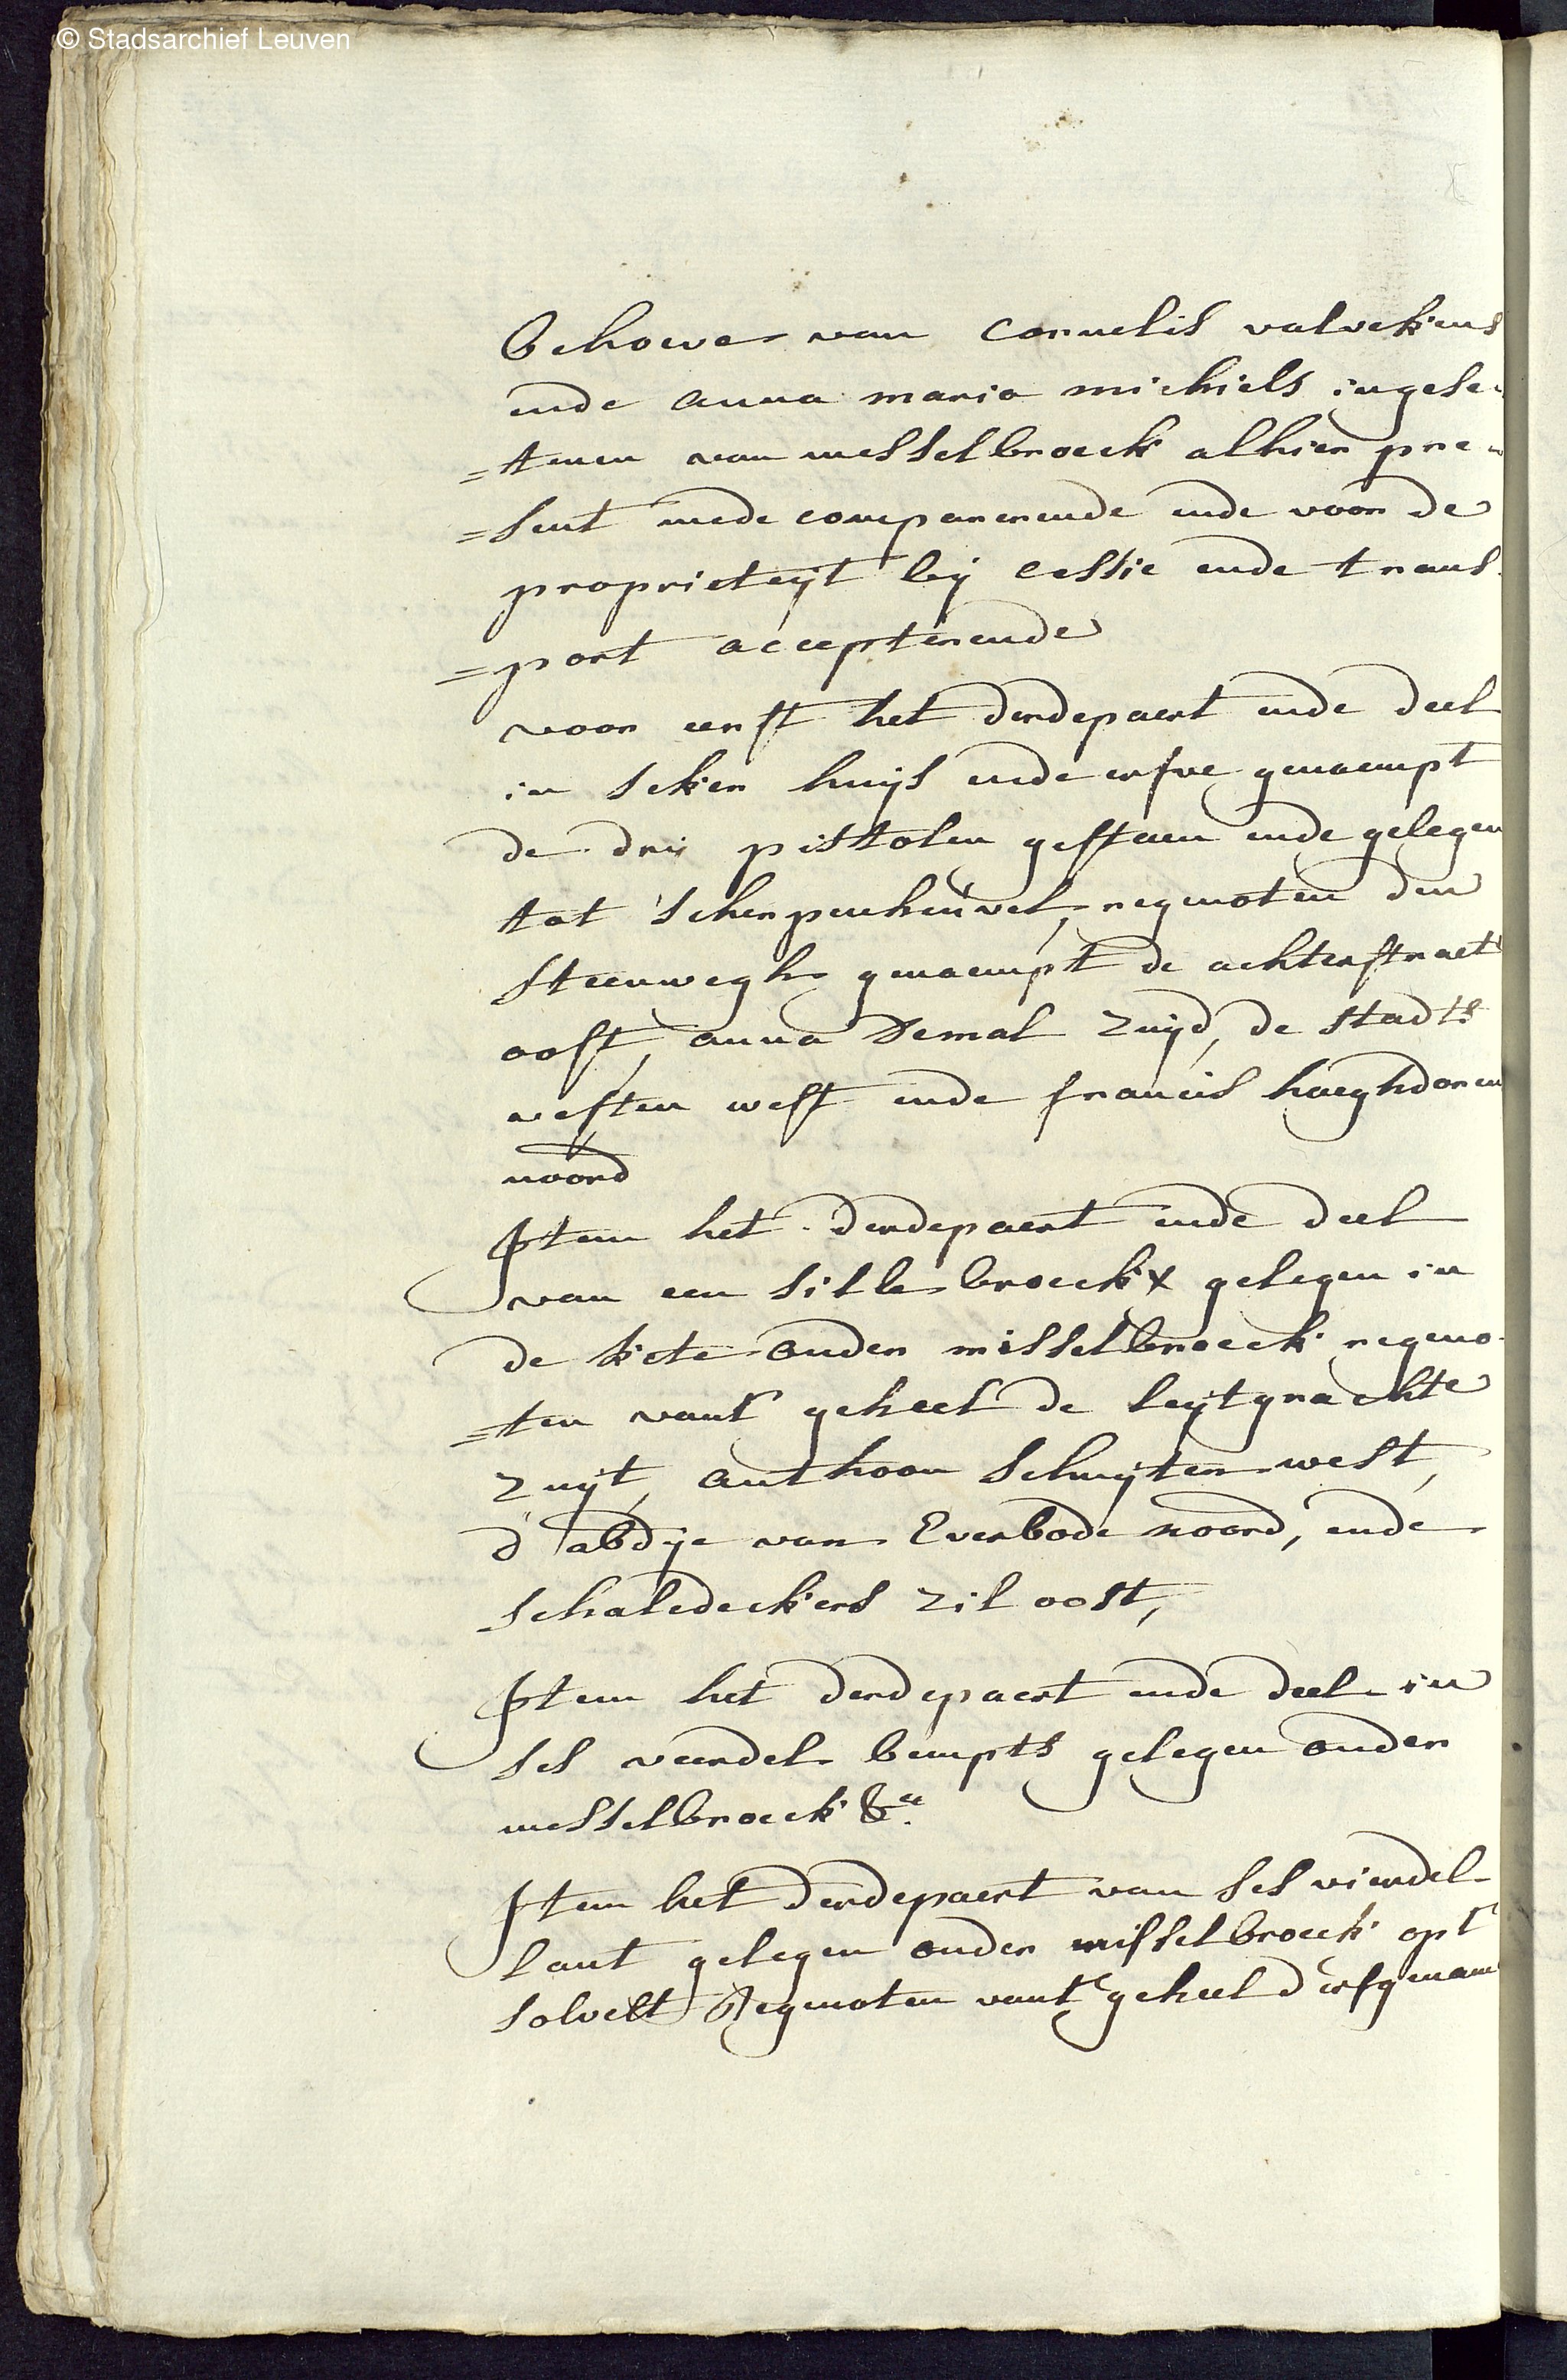 © Stadsarchief Leuven
Behoeve van Cornelis valvekens
ende anna maria michiels ingese-
=tenen van messelbroeck alhier pre-
=sent mede comparerende ende voor de
proprieteijt bij cessie ende trans-
=port accepterende
voor eerst het derdepaert ende deel
in seker huijs ende erfve genaempt
de drij pistolen gestaen ende gelegen
tot scherpenheuvel, regenoten den
steenwegh genaempt de achterstraet
oost, anna Demal zuijd, de stadts
vesten west ende francis haeghdoren
noord
Item het derdepaert ende deel
van een sille broeckx gelegen in
de kete onder misselbroeck regeno-
=ten vant geheel de leijtgrachte
zuijt, anthoon schuijten west,
d'abdije van Everbode noord, ende
schaledeckers zil oost,
Item het derdepaert ende deel in
ses veerdel bempts gelegen onder
messelbroeck &a.
Item het derdepaert van ses vierdel
lant gelegen onder misselbroeck opt
solvelt Regenoten vant geheel d'erfgenaem